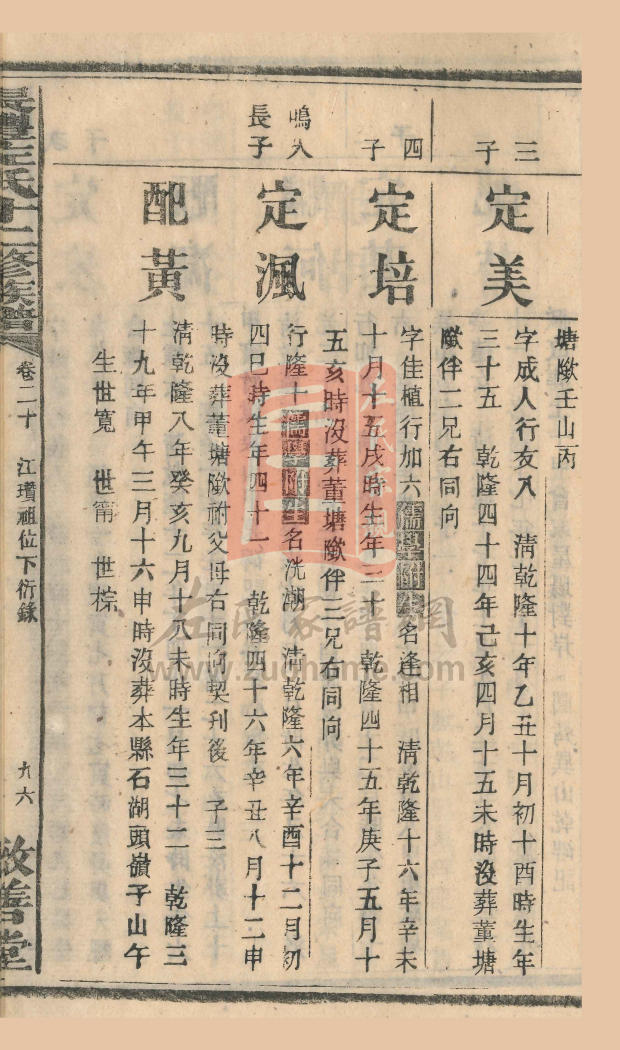 塘歟壬山丙
三子
定美
字成人行友八　清乾隆十年乙丑十月初十酉時生年
三十五　乾隆四十四年己亥四月十五未時沒葬董塘
歟伴二兄右同向
四子
定培
字佳植行加六儒學附生名逢相　清乾隆十六年辛未
十月十五戌時生年三十　乾隆四十五年庚子五月十
五亥時沒葬董塘歟伴三兄右同向
鳴人長子
定渢
行隆十儒學附生名洗湖　清乾隆六年辛酉十二月初
四巳時生年四十一　乾隆四十六年辛丑八月十二申
時沒葬董塘歟祔父母右同向契刊後　子三
配黃
清乾隆八年癸亥九月十八未時生年三十二　乾隆三
十九年甲午三月十六申時沒葬本縣石湖頭嶺子山午
生世寬　世甯　世棕
左氏十二修族譜
卷二十　江瓚祖位下衍錄
九六
敘善堂
左氏家譜網
www.zuohome.com